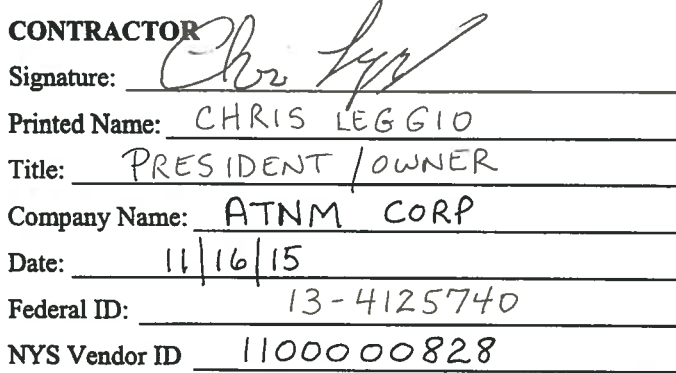 CONTRACTOR
Signature:
Printed Name: CHRIS LEGGIO
Title: PRESIDENT / OWNER
Company Name: ATNM CORP
Date: 11/16/15
Federal ID: 13-4125740
NYS Vendor ID 1100000828